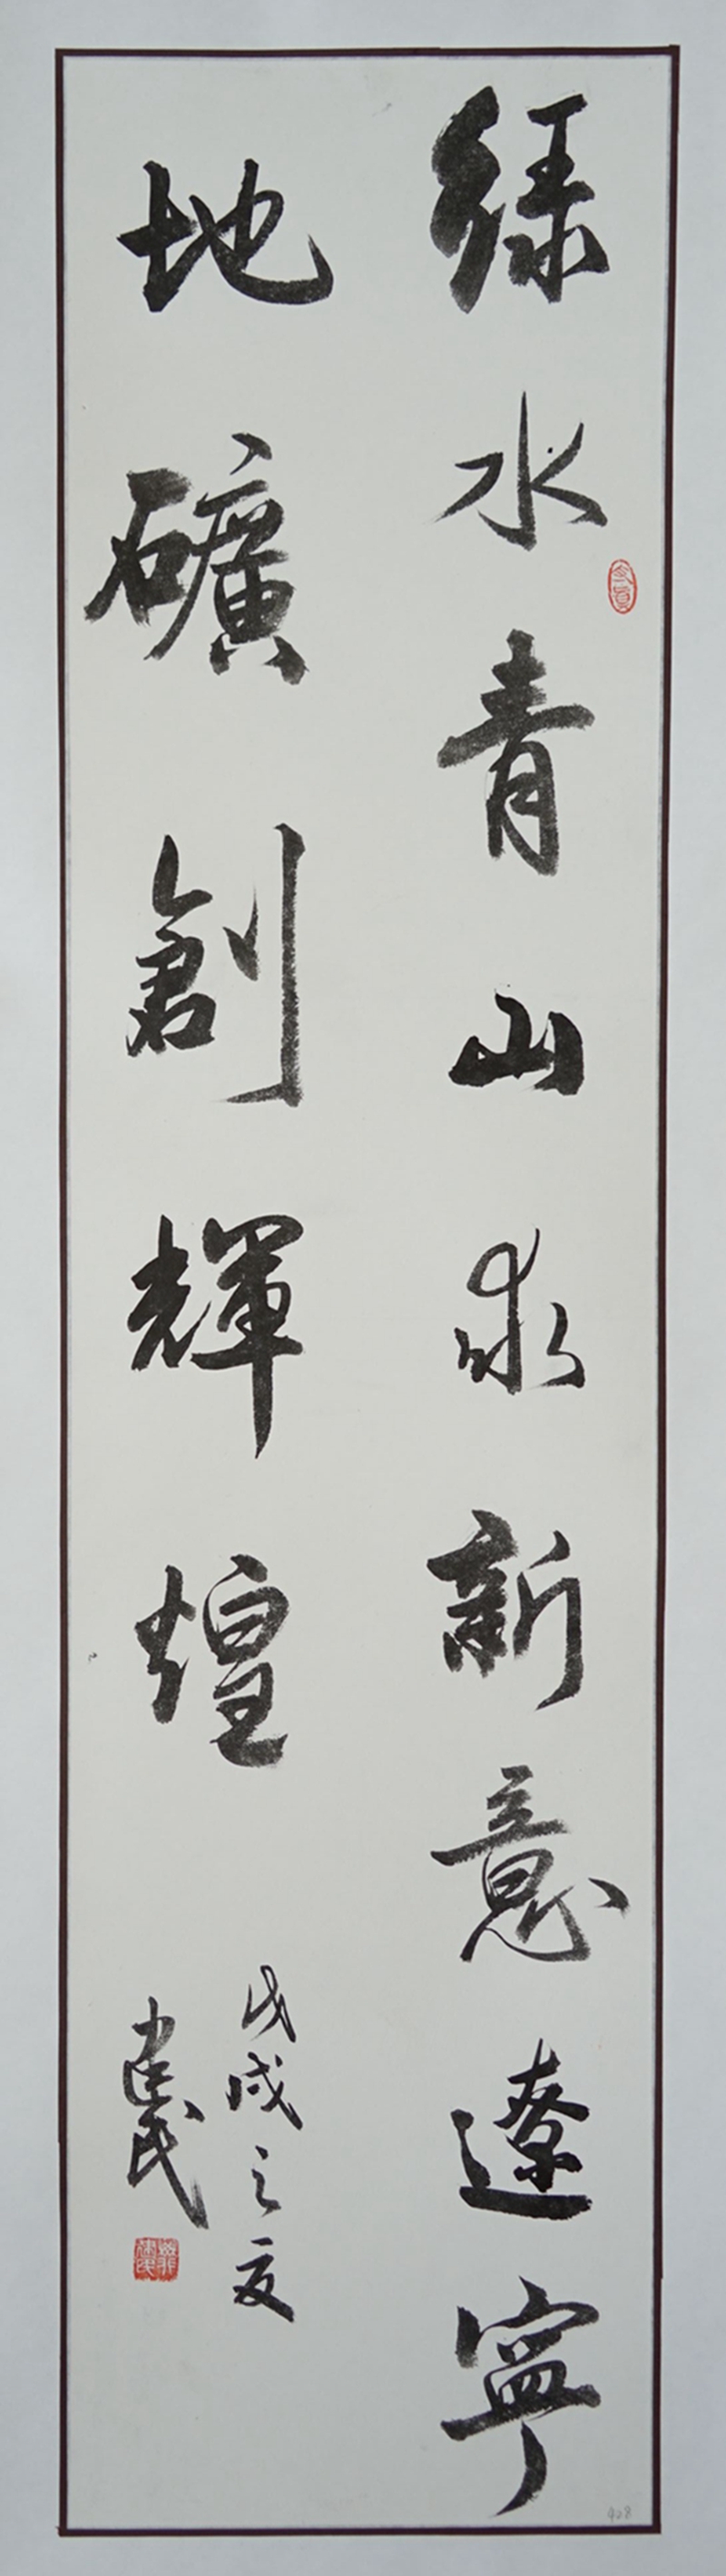 綠水青山求新意遼寧
地礦創輝煌
戊戌之夏
428